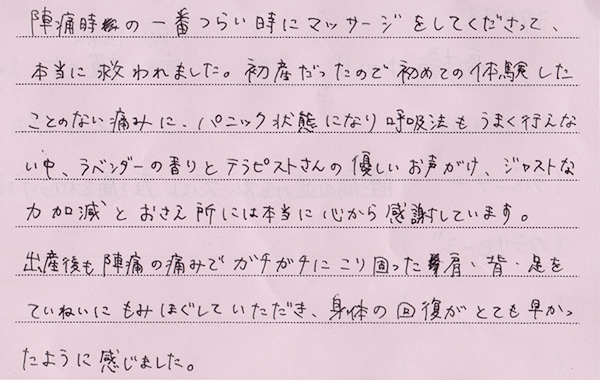 陣痛時の一番つらい時にマッサージをしてくださって、
本当に救われました。初産だったので初めての体験した
ことのない痛みに、パニック状態になり呼吸法もうまく行えな
い中、ラベンダーの香りとテラピストさんの優しいお声がけ、ジャストな
力加減とおさえ所には本当に心から感謝しています。
出産後も陣痛の痛みでガチガチにこり固った肩・背・足を
ていねいにもみほぐしていただき、身体の回復がとても早かっ
たように感じました。